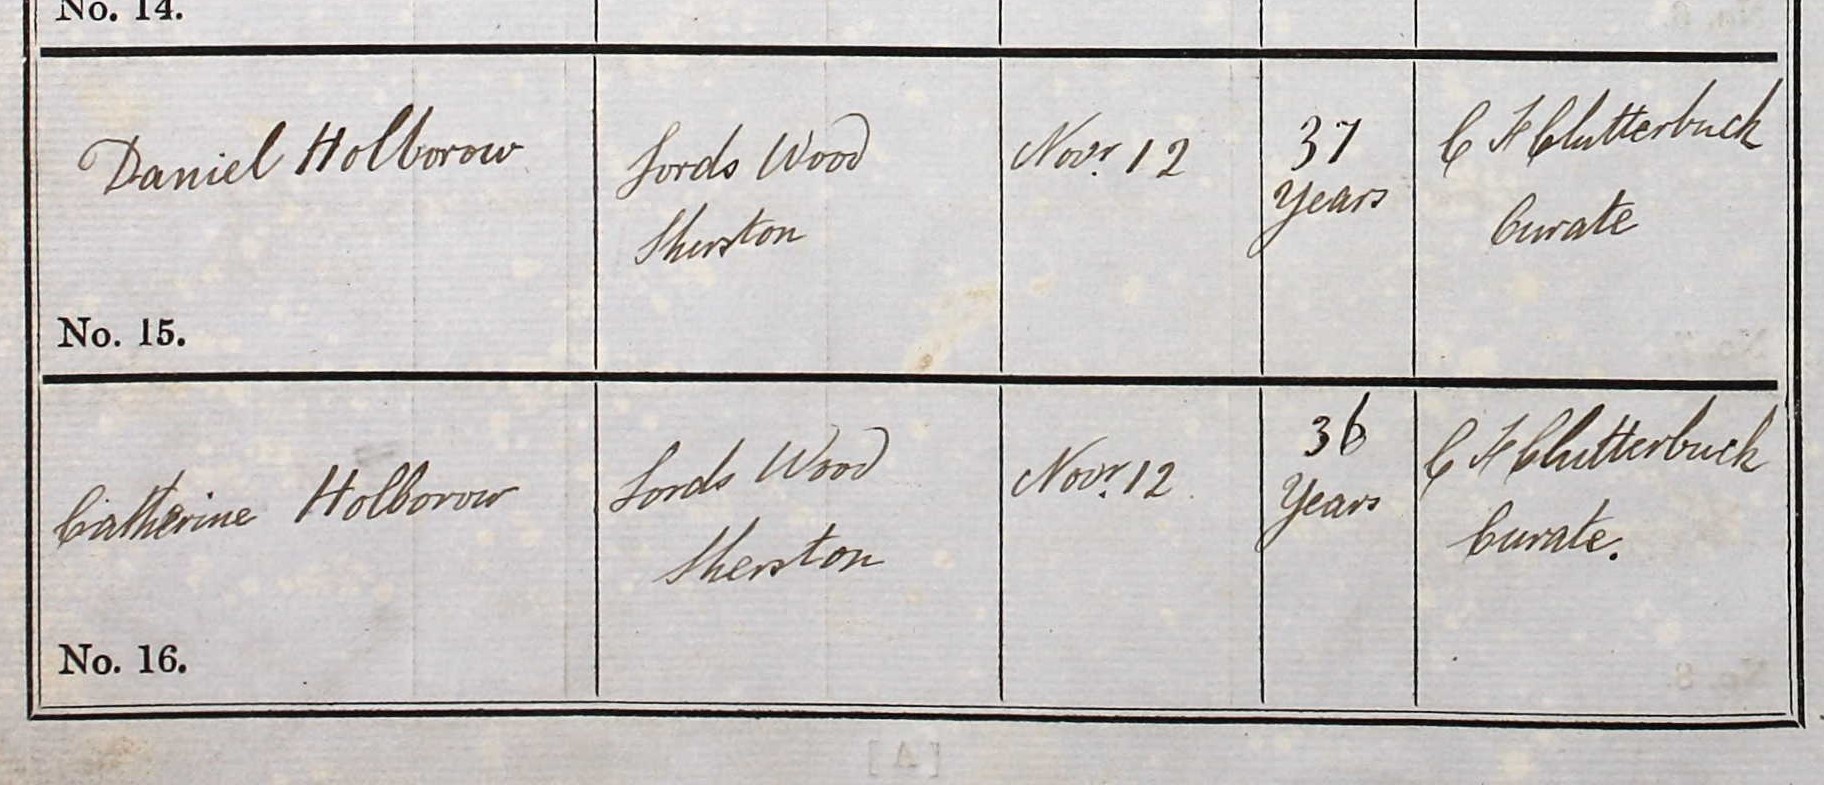 No. 14.
Daniel Holborow
Lords Wood
Sherston
Novr. 12
37
Years
C H Clutterbuck
Curate
No. 15.
Catherine Holborow
Lords Wood
Sherston
Novr. 12
36
Years
C H Clutterbuck
Curate.
No. 16.
[A]